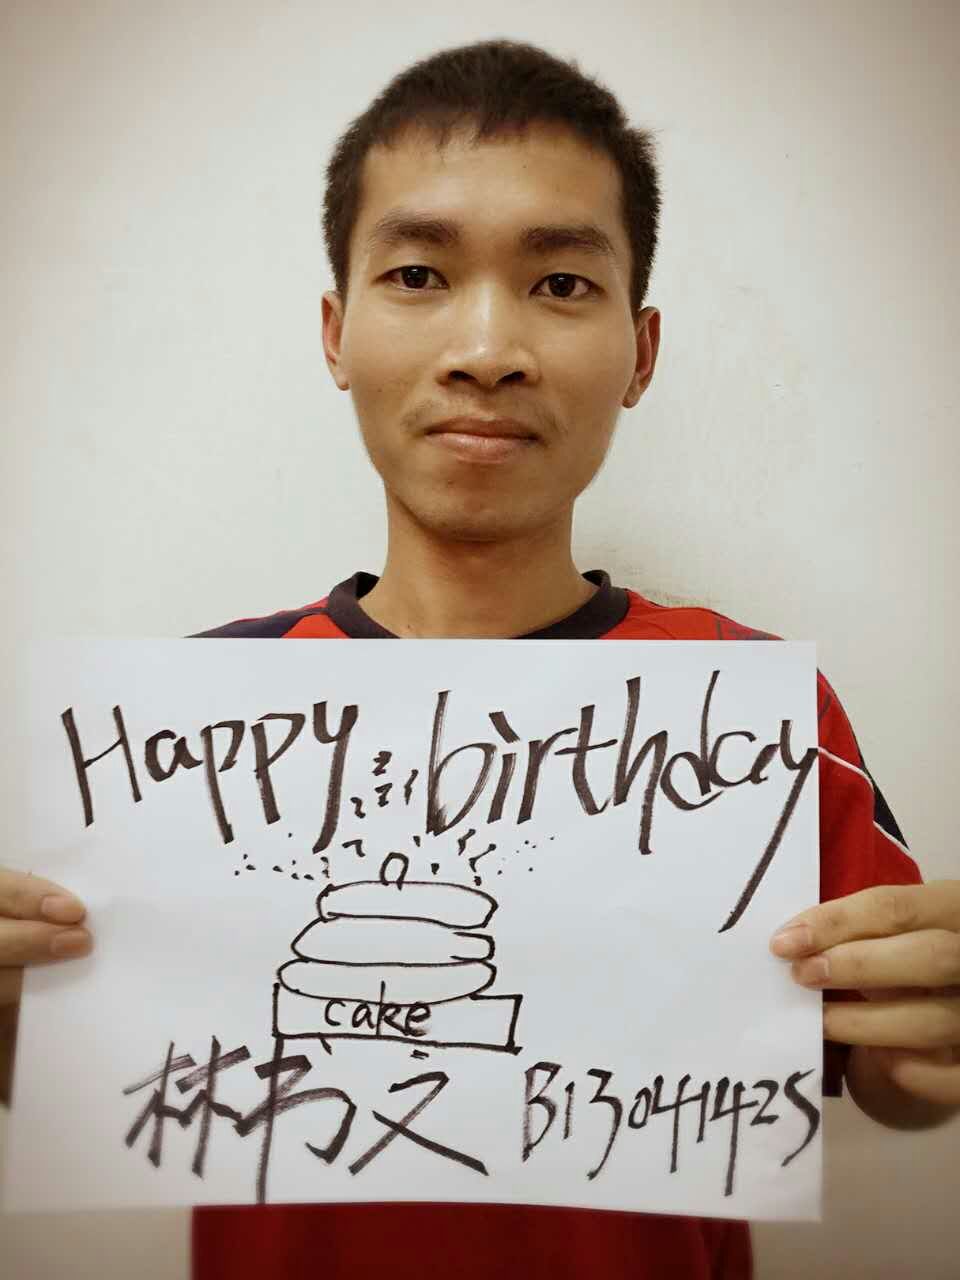 Happy birthday
cake
林书文 B13041425